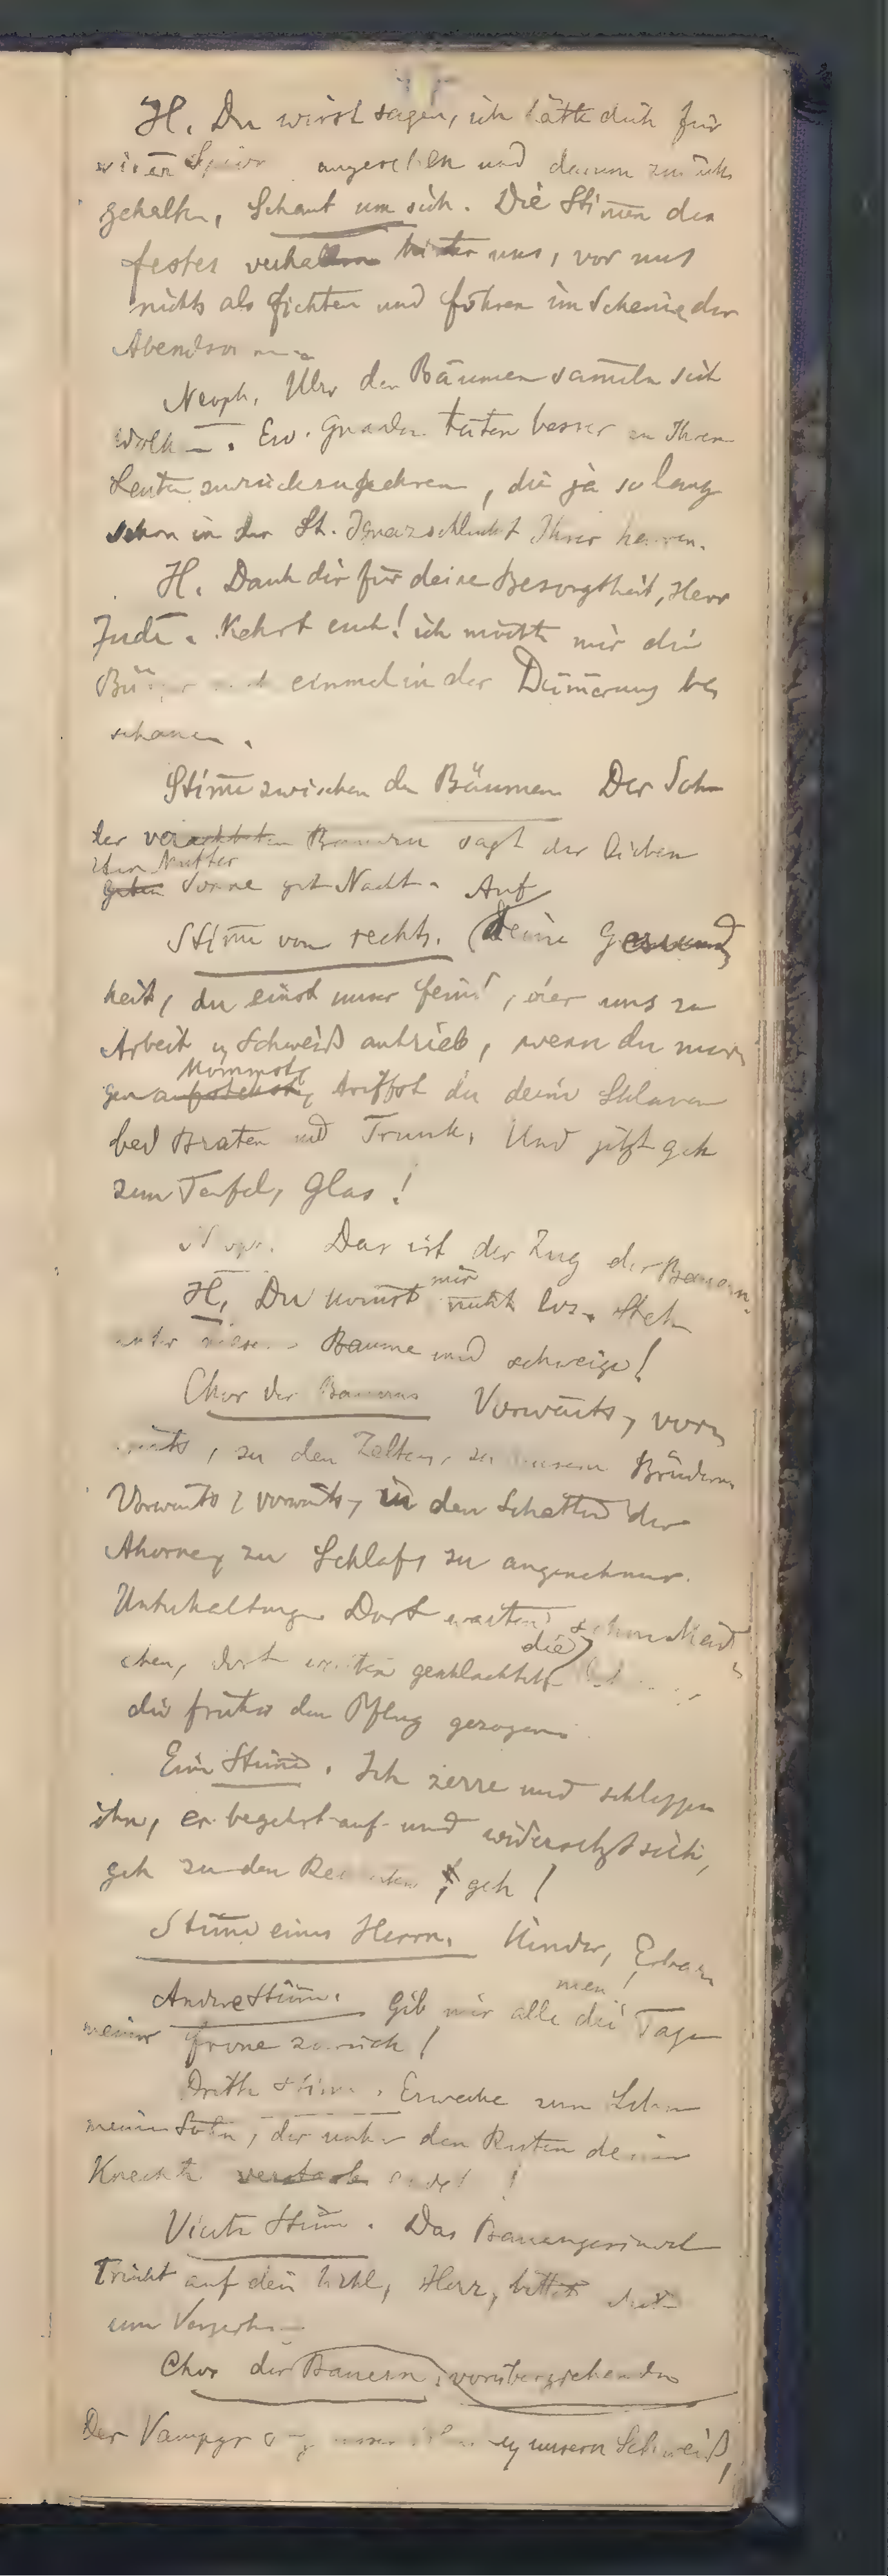 H. Du wirst sagen, ich hätte dich für
angesehen und darum zurück
gehalten, Schaut um sich. Die Stimen des
festes verhallen hinter uns, vor uns
nichts als fichten und föhren im Scheine der
Abendsonne
Neoph. Über den Bäumen sameln sich
Wolken. Ew. Gnaden täten besser zu Ihren
Leuten zurückzukehren, die ja so lang
schon in der St. Ignazschlucht Ihrer harren.
H. Dank dir für deine Besorgtheit, Herr
Jude. Kehrt euch! ich möchte mir die
einmal in der Dämerung be
schauen.
Stime zwischen den Bäumen Der Sohn
der verachteten Bauern sagt der lieben
Mutter
guten Sonne gut Nacht. Auf
Stime von rechts. Deine Gesund
heit, du einst unser feind, der uns zu
Arbeit u Schweiß antrieb, wenn du mor
kommst
gen aufstehst, triffst du deine Sklaven
bei Braten und Trunk. Und jetzt geh
zum Teufel, Glas!
Das ist der Zug der Bauern.
mir
H. Du komst nicht los. Steh
unter diesem Baume und schweige!
Chor der Bauern Vorwärts, vor
wärts, zu den Zelten, zu unsern Brüdern
Vorwärts, vorwärts, in den Schatten der
Ahorne, zu Schlaf, zu angenehmer
Unterhaltung. Dort warten Mäd
die
chen, dort warten geschlachtet
die früher den Pflug gezogen.
Eine Stime. Ich zerre und schleppe
ihn, er begehrt auf und widersetzt sich,
geh zu den geh!
Stime eines Herrn. Kinder, Erbar
men!
Andre Stime. Gib mir alle die Tage
meiner frone zurück!
Dritte Stime. Erwecke zum Leben
meinen Sohn, der unter den Ruten deiner
Knechte verstarb
Vierte Stime. Das Bauerngesindel
trinkt auf dein Wohl, Herr, bittet dich
um Verzeihung
Chor der Bauern, vorüberziehenden
Der Vampyr sog unser u unsern Schweiß,